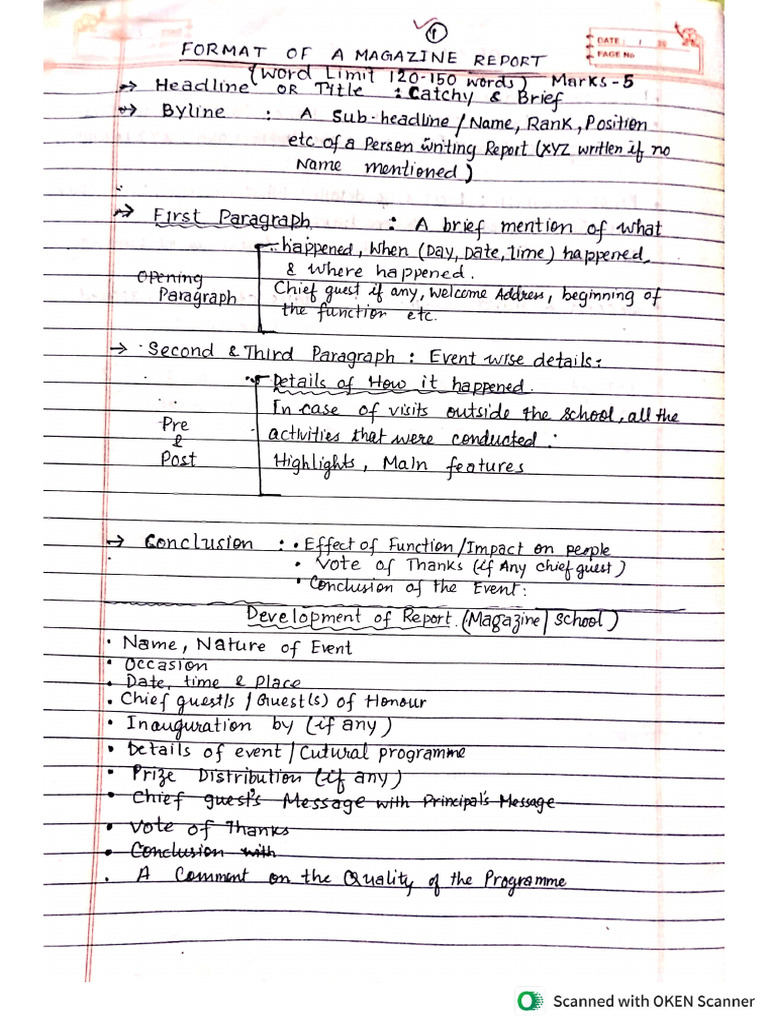 1
FORMAT OF A MAGAZINE REPORT
DATE: / 20
PAGE No
(Word Limit 120-150 words) Marks-5
→ Headline OR Title : Catchy & Brief
→ Byline : A Sub-headline / Name, Rank, Position
etc of a Person writing Report (XYZ written if no
Name mentioned)
→ First Paragraph : A brief mention of what
happened, When (Day, Date, Time) happened
& where happened.
Opening
Paragraph
Chief guest if any, Welcome Address, beginning of
the function etc.
→ Second & Third Paragraph : Event wise details:
Details of How it happened.
In case of visits outside the school, all the
Pre
&
Post
activities that were conducted :
Highlights, Main features
→ Conclusion : • Effect of Function/Impact on people
• Vote of Thanks (if Any chief guest)
• Conclusion of the Event:
Development of Report. (Magazine/School)
• Name, Nature of Event
• Occasion
• Date, time & Place
• Chief guest/s / Guest(s) of Honour
• Inauguration by (if any)
• Details of event / Cutural programme
• Prize Distribution (if any)
• Chief guest's Message with Principal's Message
• Vote of Thanks
• Conclusion with
. A Comment on the Quality of the Programme
Scanned with OKEN Scanner